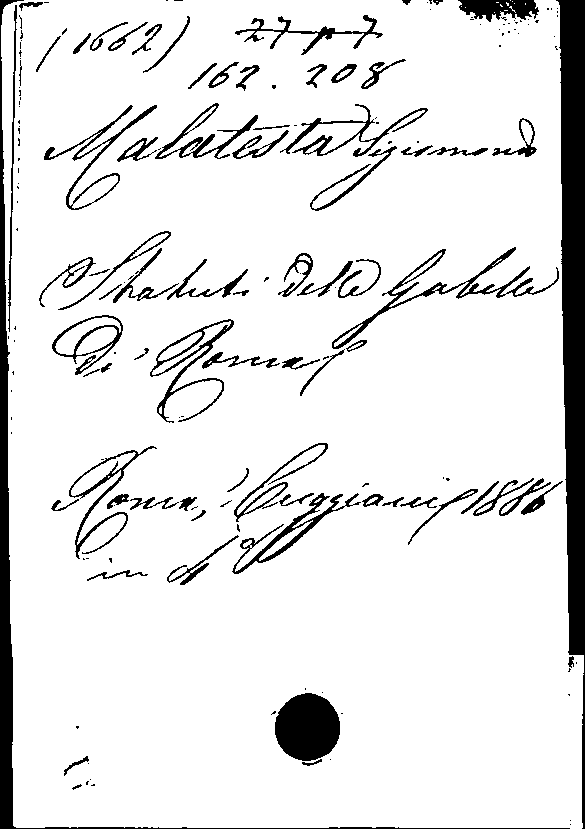 (1662) 27 p 7
162. 208
Malatesta Sigismondo
Statuti delle Gabelle
Di Roma
Roma, Cuggiani 1886
in 4º